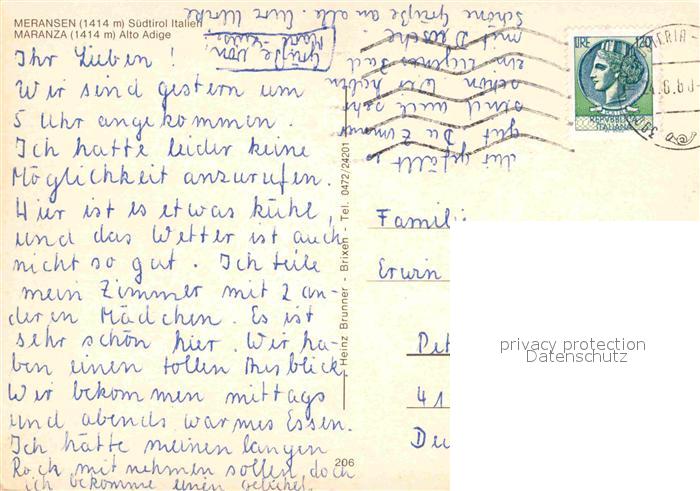 MERANSEN (1414 m) Südtirol Italien
MARANZA (1414 m) Alto Adige
Ihr Lieben!
Wir sind gestern um
5 Uhr angekommen.
Ich hatte leider keine
Möglichkeit anzurufen.
Hier ist es etwas kühl,
und das Wetter ist auch
nicht so gut. Ich teile
mein Zimmer mit 2 an-
deren Mädchen. Es ist
sehr schön hier. Wir ha-
ben einen tollen Ausblick.
Wir bekommen mittags
und abends warmes Essen.
Ich hätte meinen langen
Rock mit nehmen sollen doch
ich bekomme einen geliehen
gefällt
gut. Die Zimmer
sind auch sehr
schön. Wir haben
ein eigenes Bad
mit Dusche.
schöne Grüße an alle. Eure Ulrike
Grüße von
Heinz Brunner - Brixen - Tel. 0472/24201
206
LIRE 120
REPUBBLICA
ITALIANA
Famili
Erwin
Pet
41
Deu
privacy protection
Datenschutz